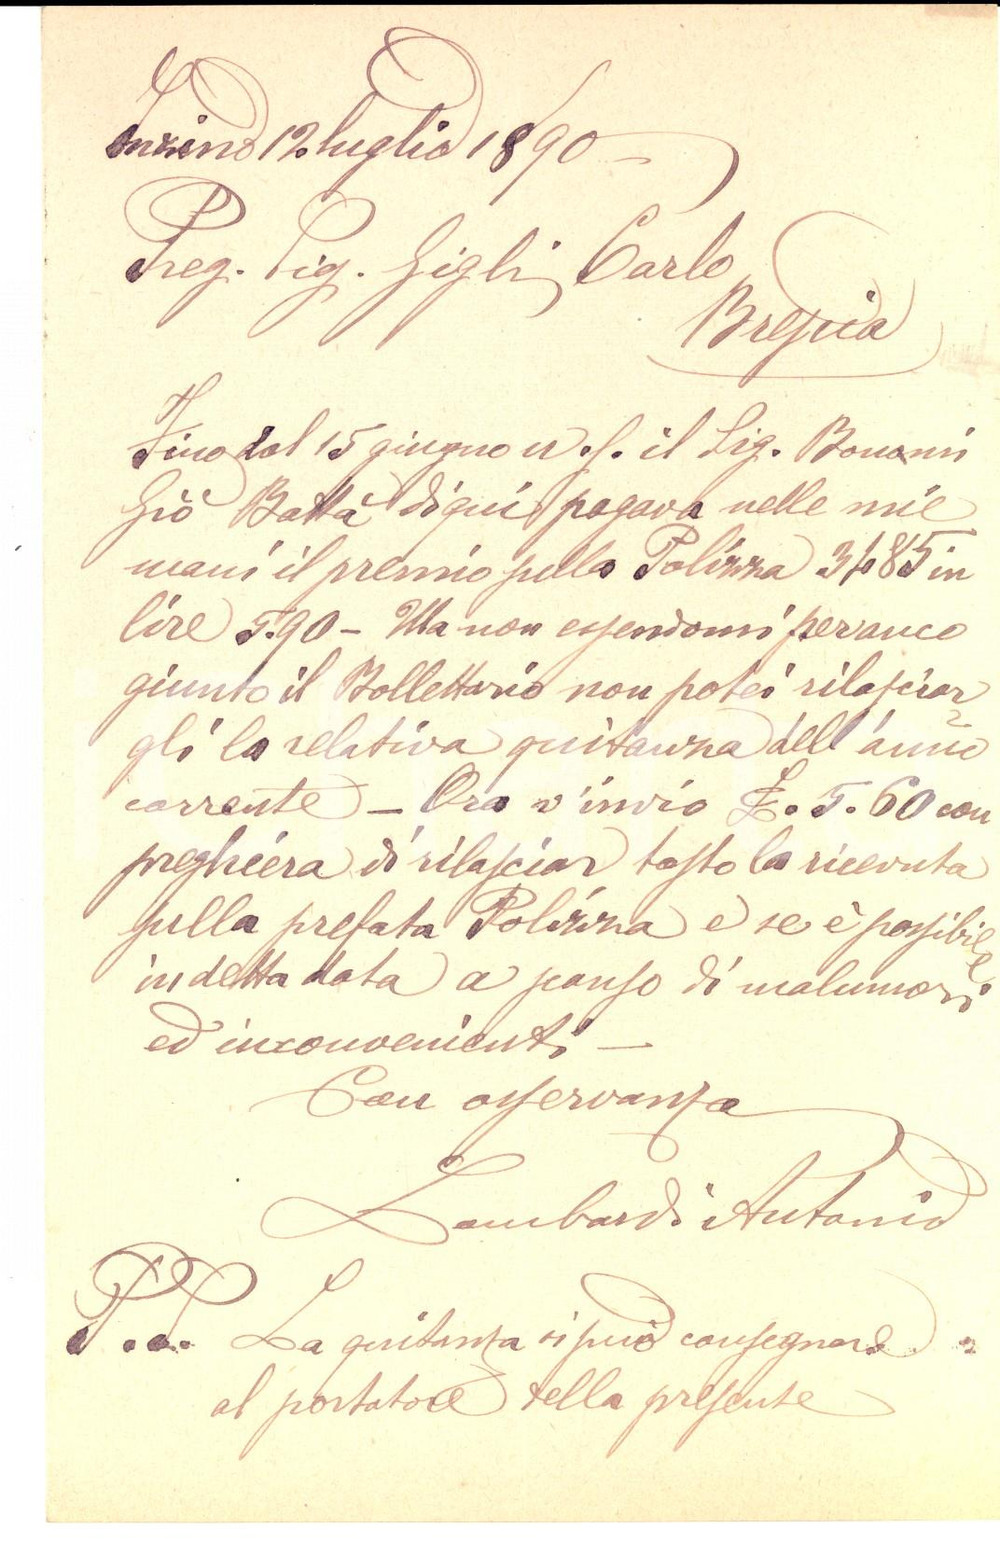 Inzino 12 luglio 1890 -
Preg. Sig. Gigli Carlo
Brescia
Fino dal 15 giugno u. s. il Sig. Bonomi
Giò Battã di qui pagava nelle mie
mani il premio sulla Polizza 3485 in
lire 5.90 - Ma non essendomi peranco
giunto il Bollettario non potei rilasciar
gli la relativa quitanza dell'anno
corrente - Ora v'invio £. 5.60 con
preghiera di rilasciar tosto la ricevuta
sulla prefata Polizza e se è possibile
in detta data a scanso di malumori
ed inconvenienti -
Con osservanza
Lombardi Antonio
P.S. La quitanza si può consegnare
al portatore della presente